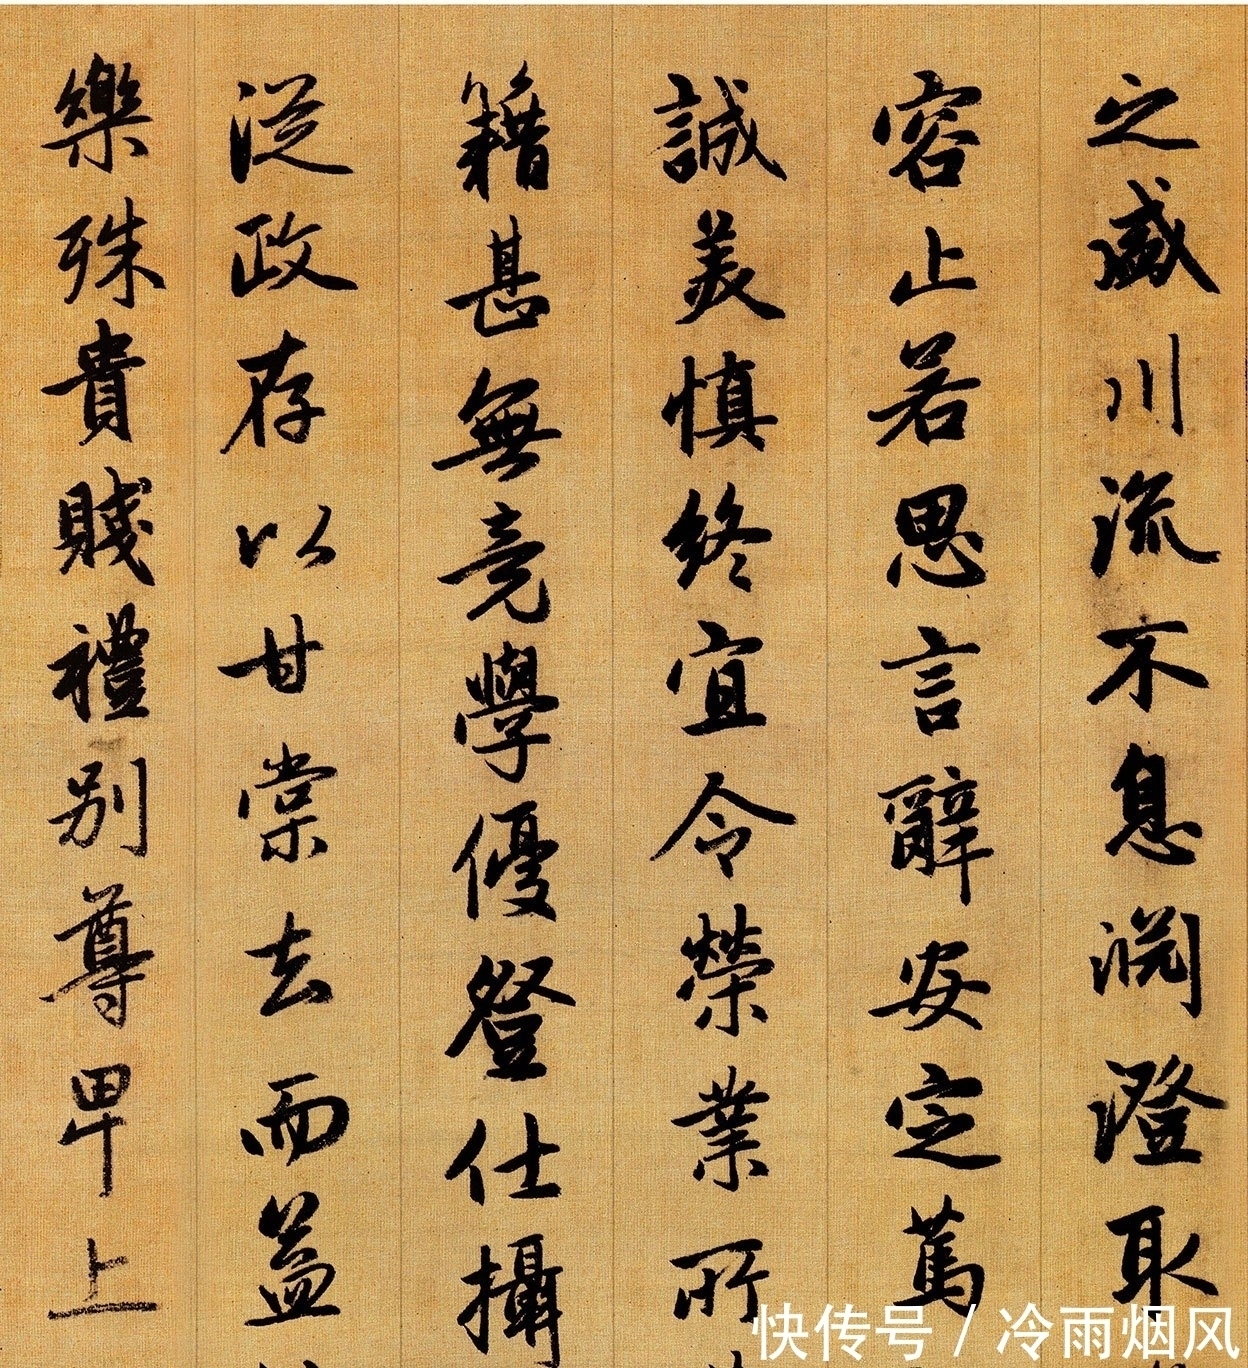 之盛川流不息渊澄取
容止若思言辭安定篤
誠美慎終宜令榮業所
籍甚無竟學優登仕攝
從政存以甘棠去而益
樂殊貴賤禮别尊卑上
快传号 / 冷雨烟风